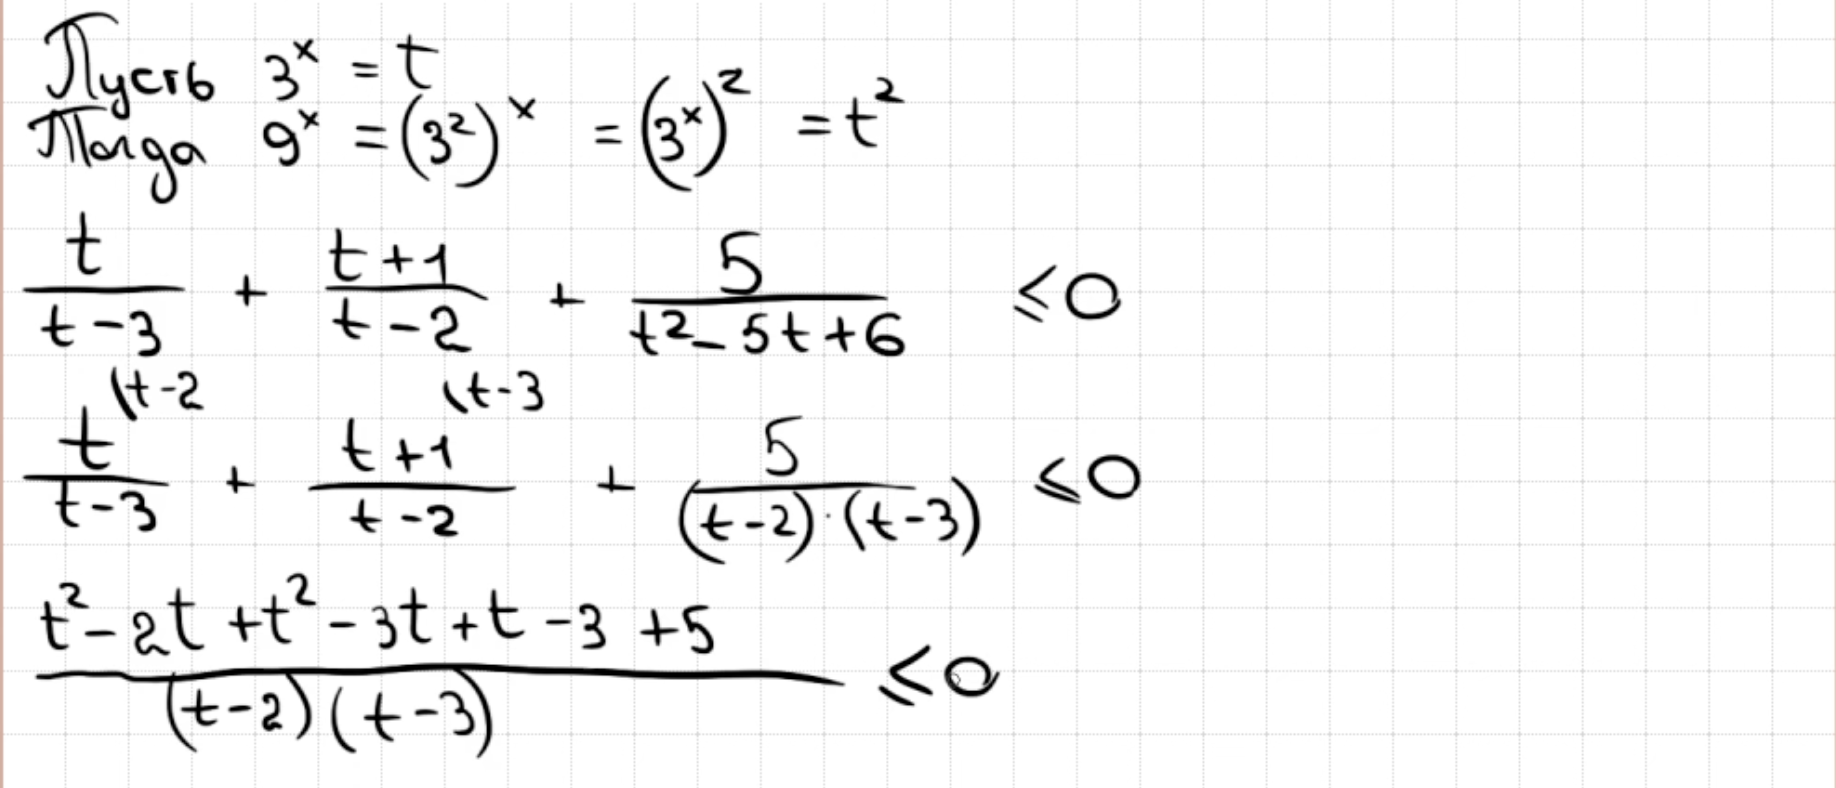 Пусть 3^x = t
Тогда 9^x = (3^2)^x = (3^x)^2 = t^2
t/(t-3) + (t+1)/(t-2) + 5/(t^2-5t+6) ≤0
t/(t-3) (t-2 + (t+1)/(t-2) (t-3 + 5/((t-2)·(t-3)) ≤0
(t^2-2t+t^2-3t+t-3+5)/((t-2)(t-3)) ≤0